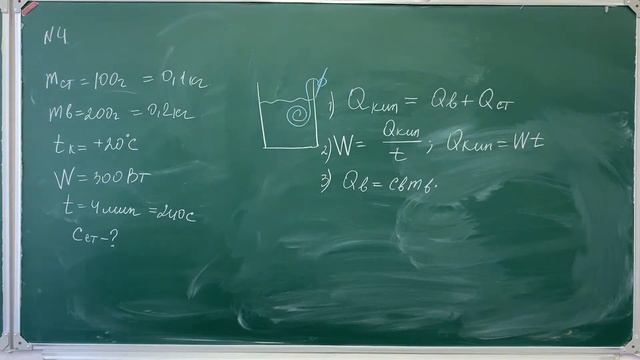 N4
mст = 100г = 0,1кг
mв = 200г = 0,2кг
tк = +20°C
W = 300Вт
t = 4мин = 240с
Cст - ?
1) Qкип = Qв + Qст
2) W = Qкип/t ; Qкип = Wt
3) Qв = cвmв·